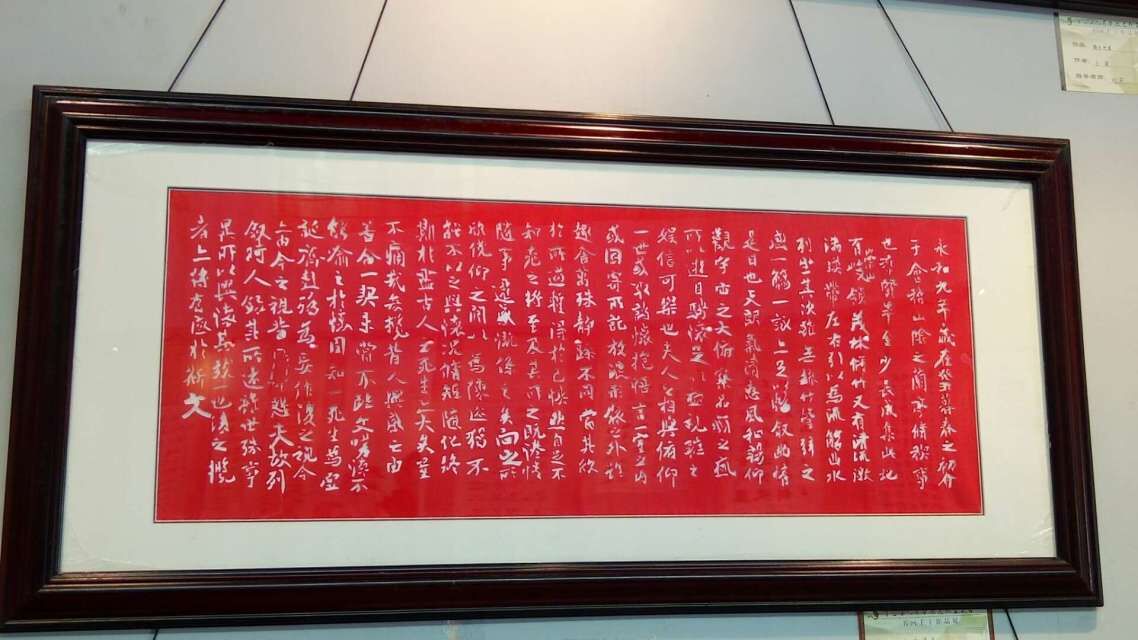 永和九年歲在癸丑暮春之初會
于會稽山陰之蘭亭脩稧事
也羣賢畢至少長咸集此地
有崇山峻領茂林脩竹又有清流激
湍暎帶左右引以為流觴曲水
列坐其次雖無絲竹管弦之
盛一觴一詠亦足以暢敘幽情
是日也天朗氣清惠風和暢仰
觀宇宙之大俯察品類之盛
所以遊目騁懷足以極視聽之
娛信可樂也夫人之相與俯仰
一世或取諸懷抱悟言一室之內
或因寄所託放浪形骸之外雖
趣舍萬殊靜躁不同當其欣
於所遇蹔得於己怏然自足不
知老之將至及其所之既惓情
隨事遷感慨係之矣向之所
欣俛仰之間以為陳迹猶不
能不以之興懷況脩短隨化終
期於盡古人云死生亦大矣豈
不痛哉每攬昔人興感之由
若合一契未嘗不臨文嗟悼不
能喻之於懷固知一死生為虛
誕齊彭殤為妄作後之視今
亦由今之視昔悲夫故列
敘時人錄其所述雖世殊事
異所以興懷其致一也後之攬
者亦將有感於斯文
作者